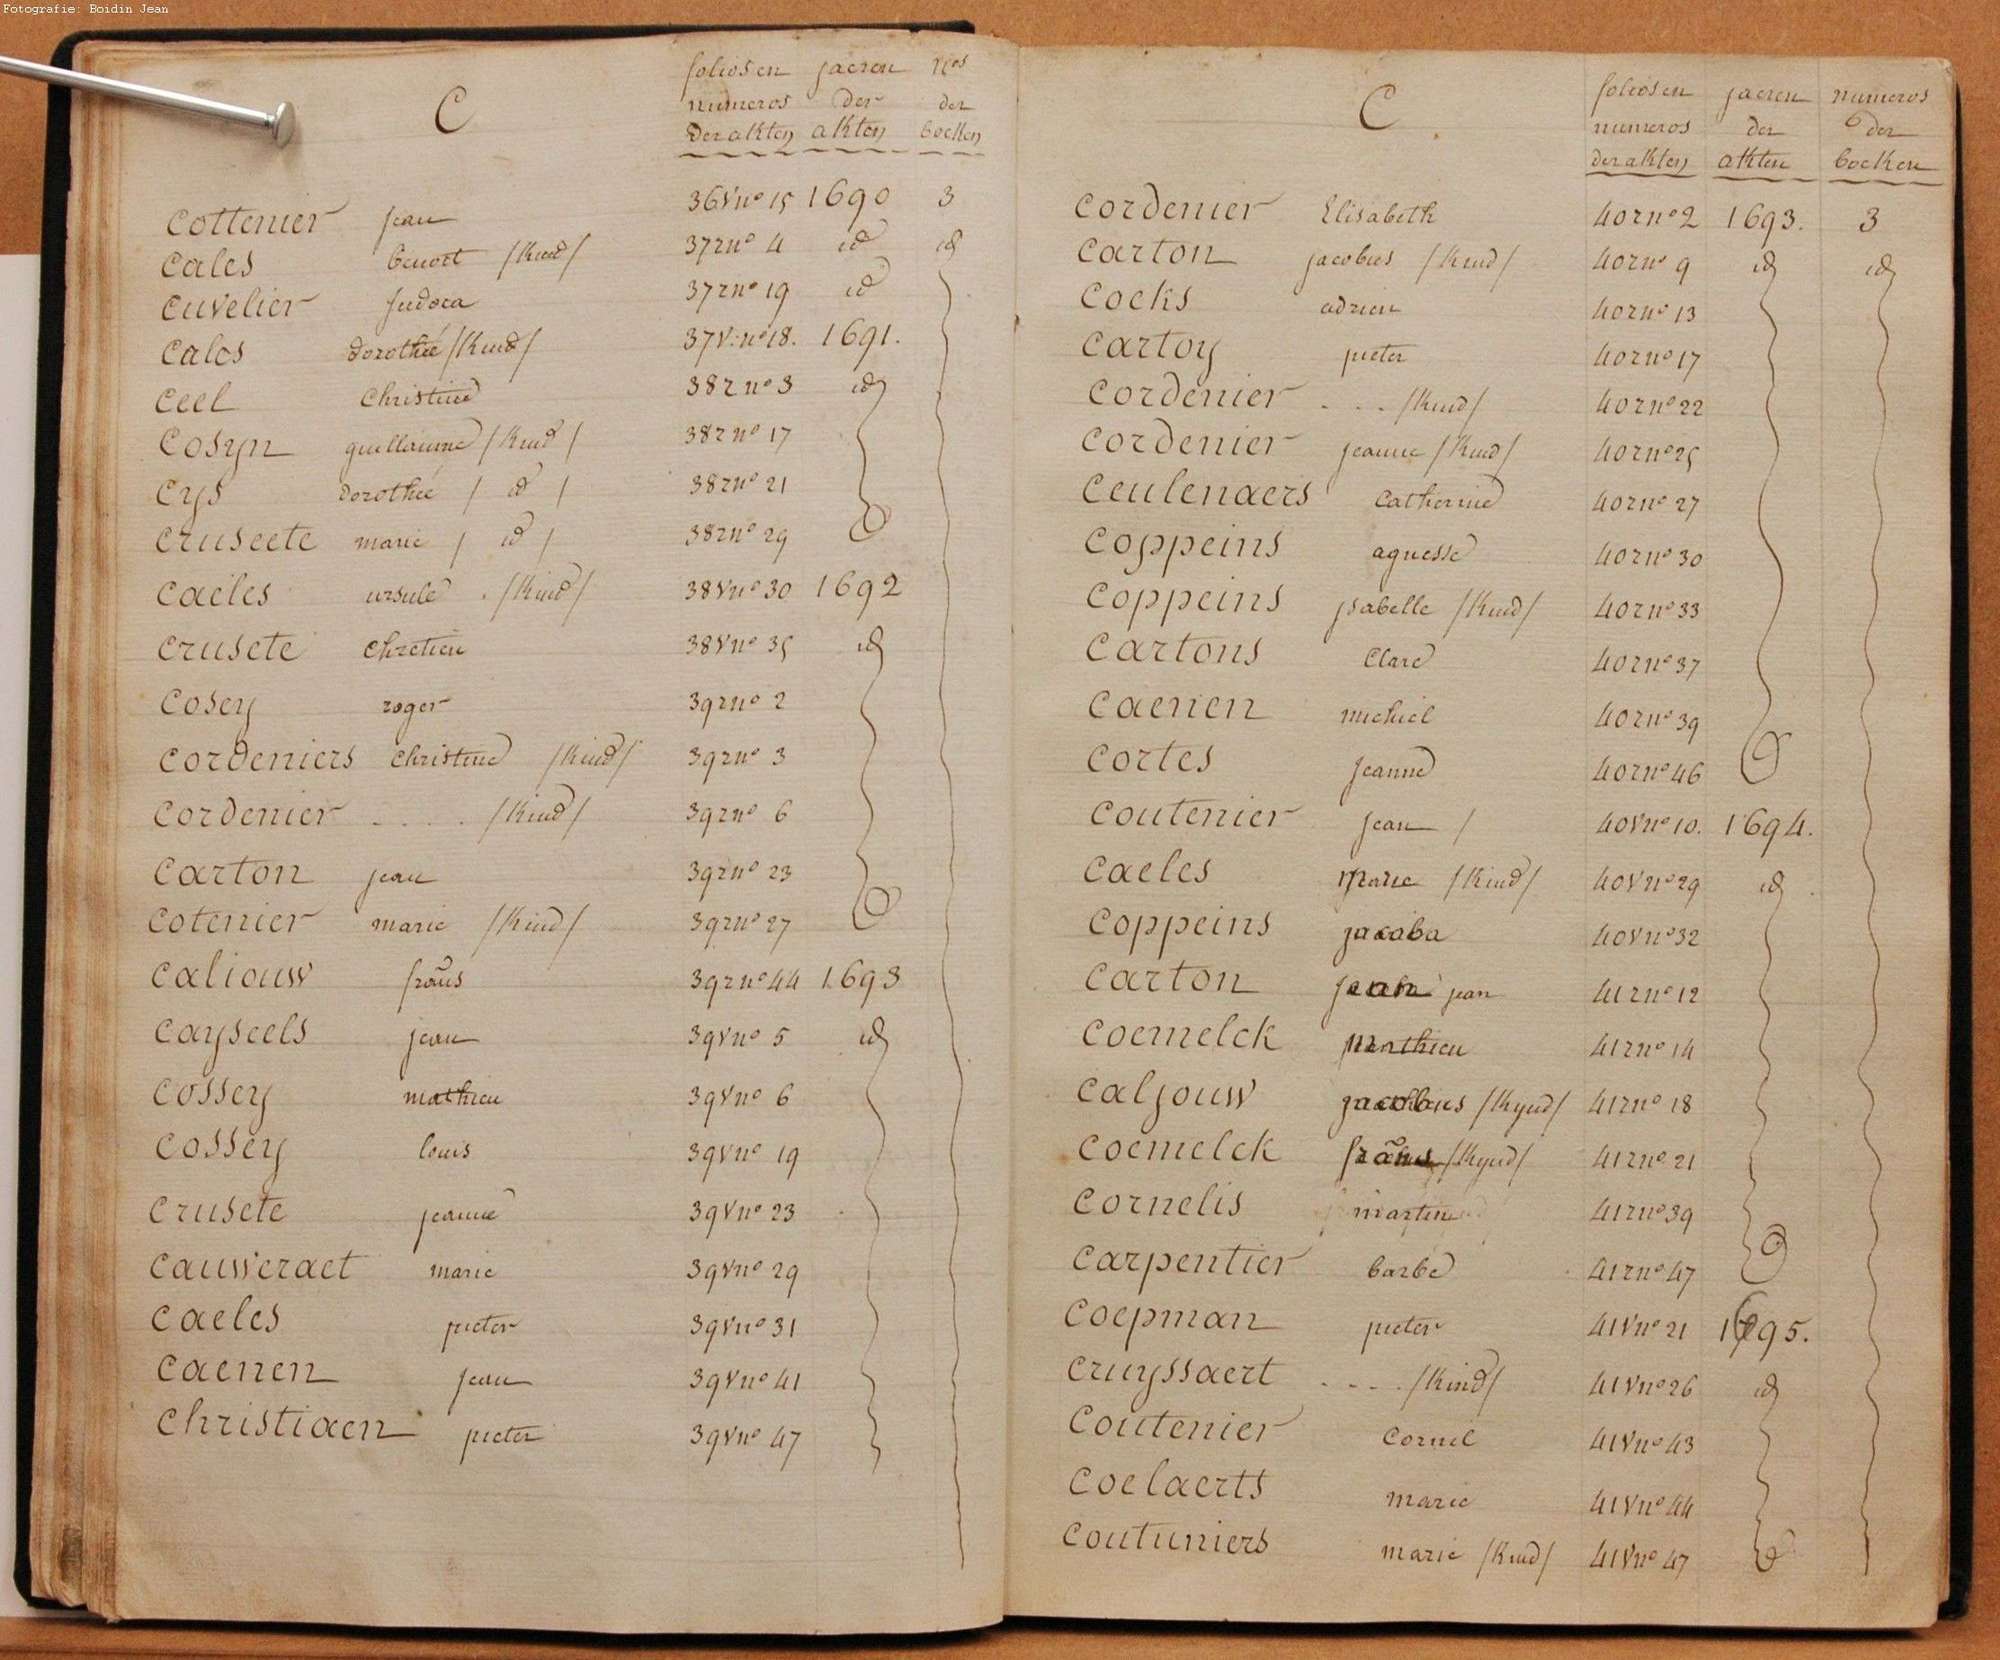 Fotografie: Boidin Jean
C
folios en jaeren nos
numeros der der
der akten akten boeken
Cottenier jean 36v no 15 1690 3
Cales benoit /Kind/ 37r no 4 id id
Cuvelier Judoca 37r no 19 id
Calos dorothée /Kind/ 37v. no 18. 1691.
Ceel Christine 38r no 3 id
Cosyn guillaume /Kind/ 38r no 17
Cys dorothée / id / 38r no 21
Cruseete marie / id / 38r no 29
Caeles ursule /Kind/ 38v no 30 1692
Crusete chretien 38v no 35 id
Cosey roger 39r no 2
Cordeniers Christine /Kind/ 39r no 3
Cordenier . . . . /Kind/ 39r no 6
Carton jean 39r no 23
Cotenier marie /Kind/ 39r no 27
Caliouw frans 39r no 44 1693
Cayseels jean 39v no 5 id
Cossey mathieu 39v no 6
Cossey louis 39v no 19
Crusete jeanne 39v no 23
Cauweraet marie 39v no 29
Caeles pieter 39v no 31
Caenen jean 39v no 41
Christiaen pieter 39v no 47
C
folios en jaeren numeros
numeros der der
der akten akten boeken
Cordenier Elisabeth 40r no 2 1693. 3
Carton jacobus /Kind/ 40r no 9 id id
Cocks adrien 40r no 13
Cartoy pieter 40r no 17
Cordenier . . . /Kind/ 40r no 22
Cordenier jeanne /Kind/ 40r no 25
Ceulenaers catherine 40r no 27
Coppeins agnesse 40r no 30
Coppeins jsabelle /Kind/ 40r no 33
Cartons Clare 40r no 37
Caenen michiel 40r no 39
Cortes jeanne 40r no 46
Coutenier jean / 40v no 10. 1694.
Caeles marie /Kind/ 40v no 29 id
Coppeins jacoba 40v no 32
Carton jean jean 41r no 12
Coemelck mathieu 41r no 14
Caljouw jacobus /Kynd/ 41r no 18
Coemelck frans /Kynd/ 41r no 21
Cornelis martin 41r no 39
Carpentier barbe 41r no 47
Coepman pieter 41v no 21 1695.
Cruyssaert . . . . /Kind/ 41v no 26 id
Coutenier Cornil 41v no 43
Coelaerts marie 41v no 44
Coutuniers marie /Kind/ 41v no 47